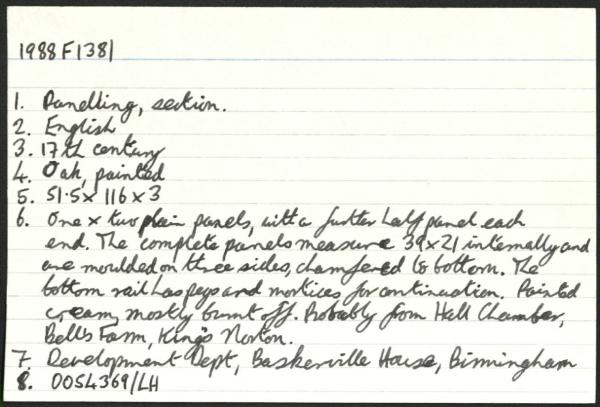 1988 F1381
1. Panelling, section.
2. English
3. 17th century
4. Oak, painted
5. 51.5 x 116 x 3
6. One x two plain panels, with a further half panel each
end. The complete panels measure 39 x 21 internally and
are moulded on three sides, chamfered to bottom. The
bottom rail has pegs and mortices for continuation. Painted
cream, mostly burnt off. Probably from Hall Chamber,
Bell's Farm, King's Norton.
7. Development Dept, Baskerville House, Birmingham
8. 0054369/LH